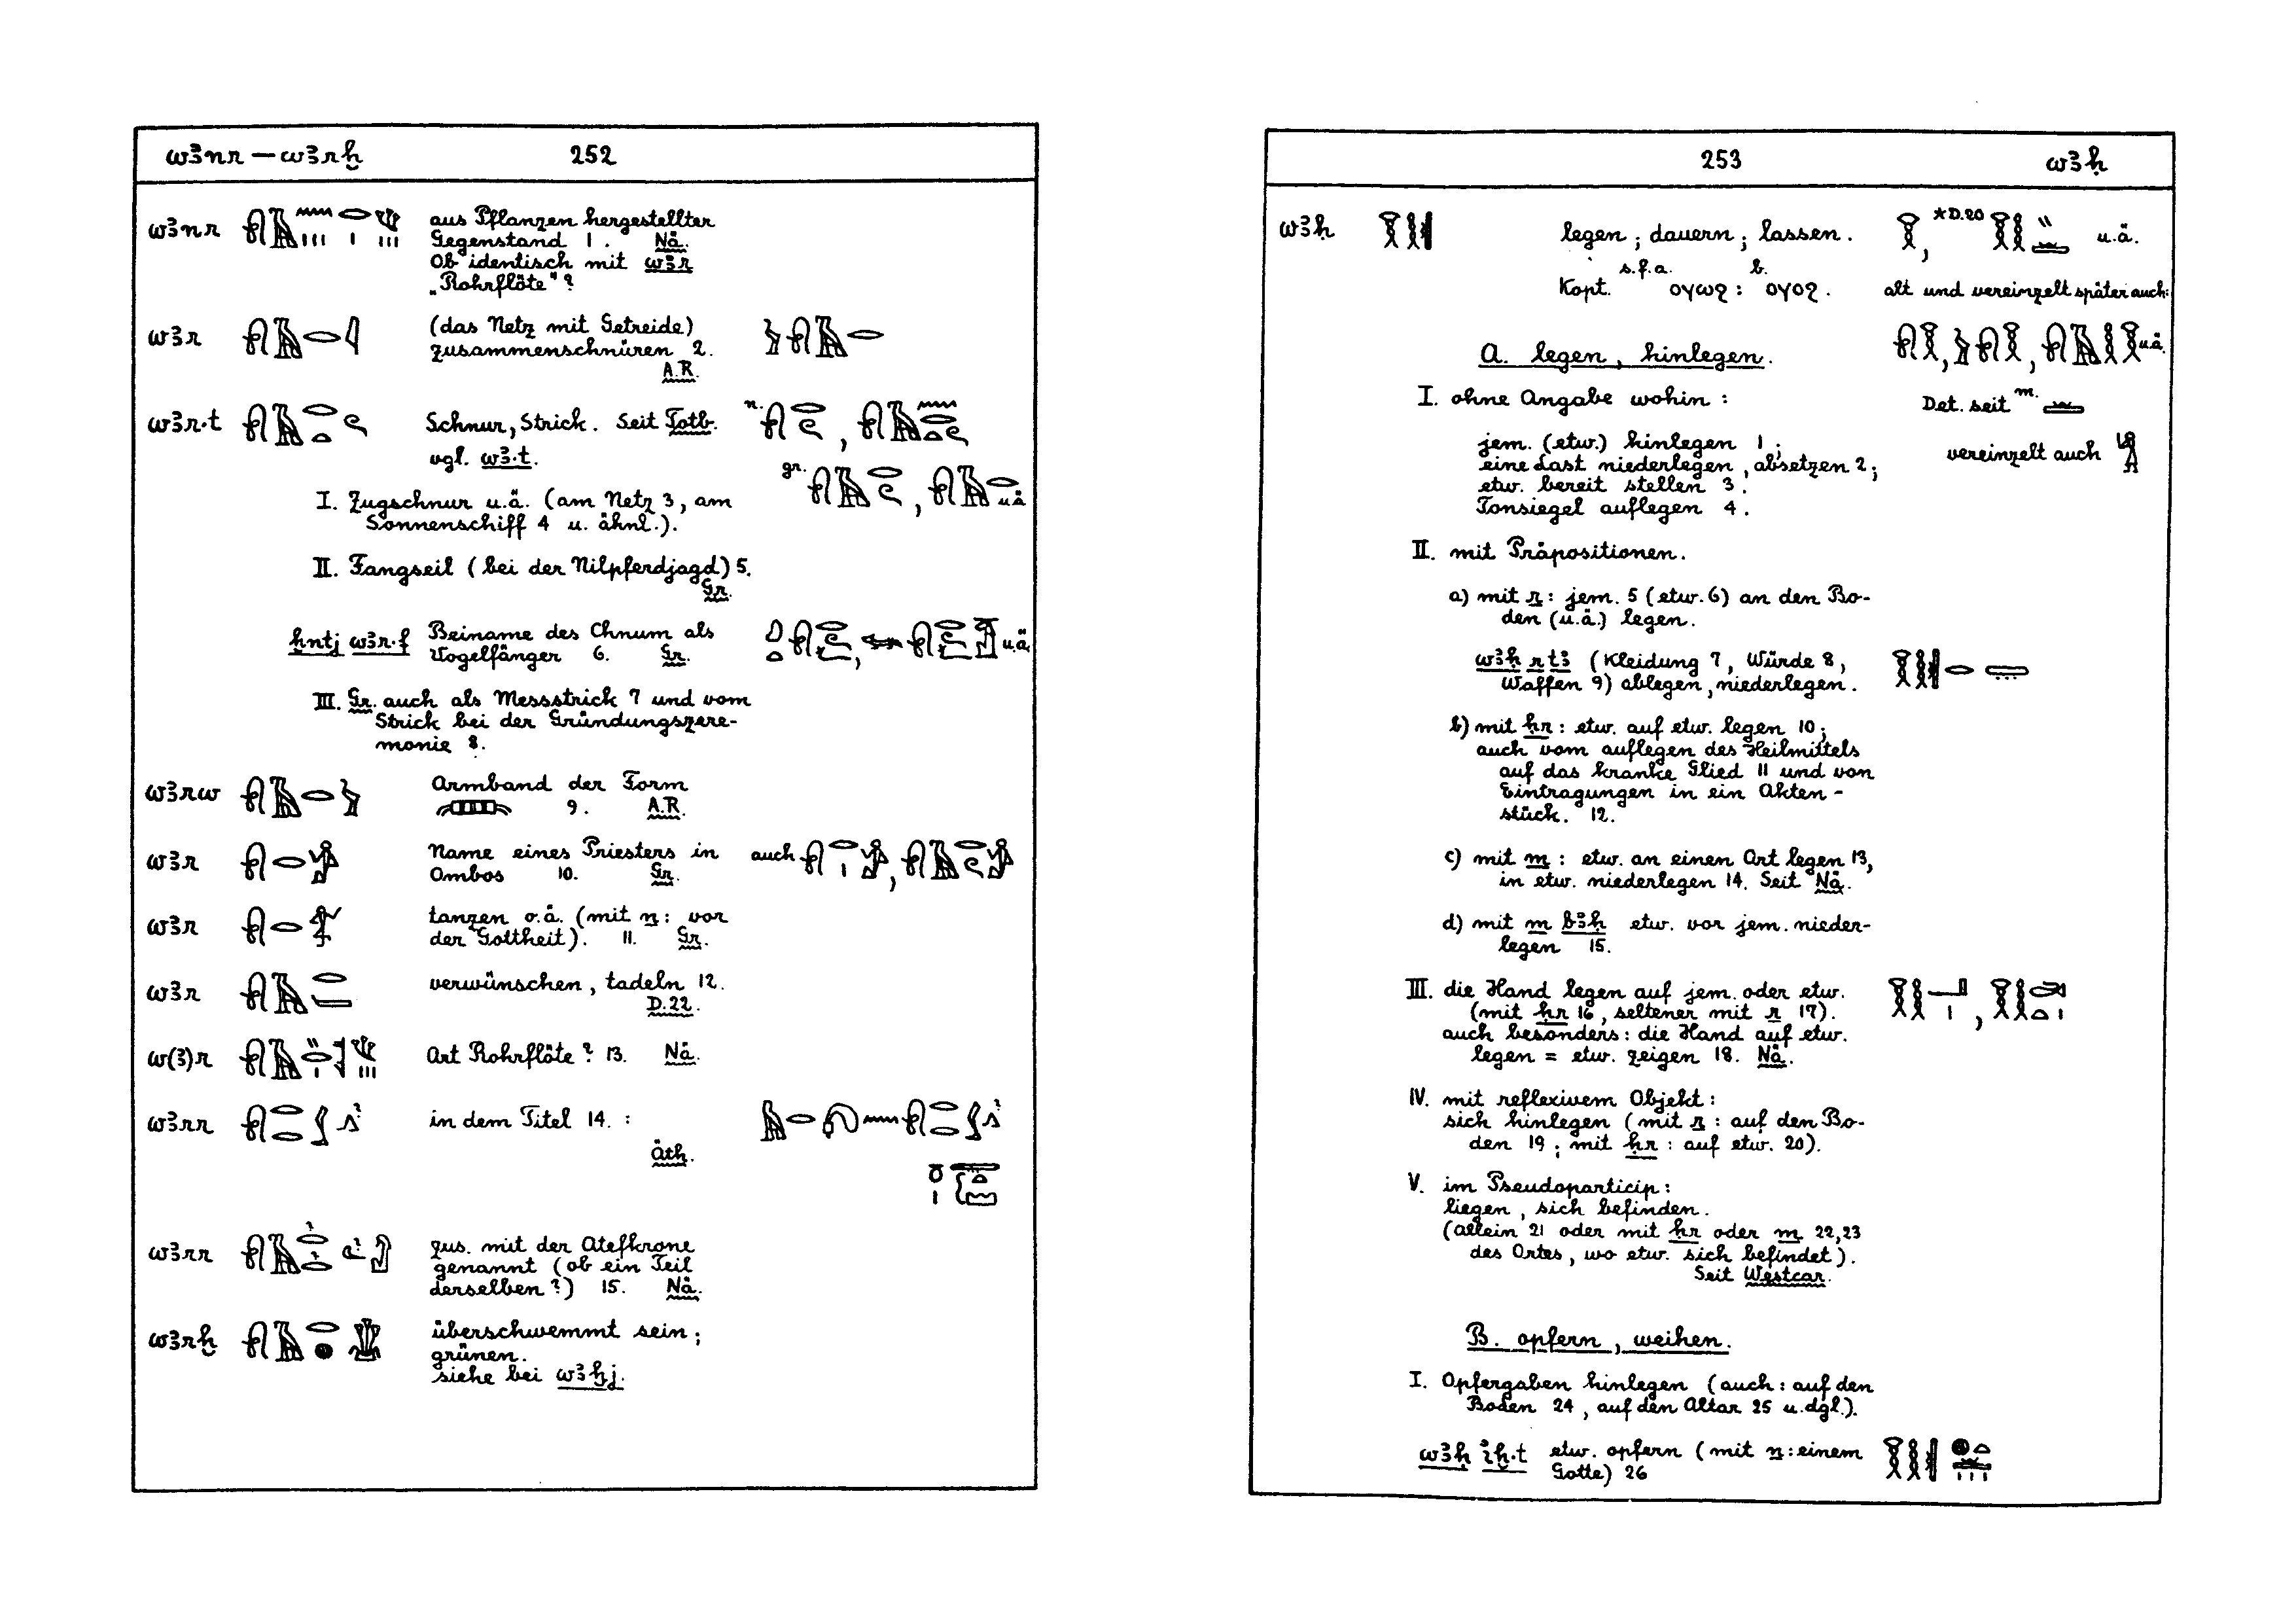 wꜣnr — wꜣrḫ 252
wꜣnr aus Pflanzen hergestellter
Gegenstand 1. Nä.
Ob identisch mit wꜣr
„Rohrflöte"?
wꜣr (das Netz mit Getreide)
zusammenschnüren 2.
A.R.
wꜣr·t Schnur, Strick. Seit Totb. n.
vgl. wꜣ·t. gr.
I. Zugschnur u.ä. (am Netz 3, am u.ä.
Sonnenschiff 4 u. ähnl.).
II. Fangseil (bei der Nilpferdjagd) 5.
Gr.
ḫntj wꜣr·f Beiname des Chnum als u.ä.
Vogelfänger 6. Gr.
III. Gr. auch als Messstrick 7 und vom
Strick bei der Gründungszere-
monie 8.
wꜣrw Armband der Form
9. A.R.
wꜣr Name eines Priesters in auch
Ombos 10. Gr.
wꜣr tanzen o.ä. (mit n: vor
der Gottheit). 11. Gr.
wꜣr verwünschen, tadeln 12.
D.22.
w(ꜣ)r Art Rohrflöte? 13. Nä.
wꜣrr in dem Titel 14. :
Äth.
wꜣrr zus. mit der Atefkrone
genannt (ob ein Teil
derselben?) 15. Nä.
wꜣrḫ überschwemmt sein;
grünen.
siehe bei wꜣḫj.
253 wꜣḥ
wꜣḥ legen; dauern; lassen. *D.20 u.ä.
Kopt. s.f.a. ⲟⲩⲱϩ : b. ⲟⲩⲟϩ. alt und vereinzelt später auch:
A. legen, hinlegen. u.ä.
I. ohne Angabe wohin : Det. seit m.
jem. (etw.) hinlegen 1; vereinzelt auch
eine Last niederlegen, absetzen 2;
etw. bereit stellen 3.
Tonsiegel auflegen 4.
II. mit Präpositionen.
a) mit r: jem. 5 (etw. 6) an den Bo-
den (u.ä.) legen.
wꜣḥ r tꜣ (Kleidung 7, Würde 8,
Waffen 9) ablegen, niederlegen.
b) mit ḥr : etw. auf etw. legen 10;
auch vom auflegen des Heilmittels
auf das kranke Glied 11 und von
Eintragungen in ein Akten-
stück. 12.
c) mit m : etw. an einen Ort legen 13,
in etw. niederlegen 14. Seit Nä.
d) mit m bꜣḥ etw. vor jem. nieder-
legen 15.
III. die Hand legen auf jem. oder etw.
(mit ḥr 16, seltener mit r 17).
auch besonders: die Hand auf etw.
legen = etw. zeigen 18. Nä.
IV. mit reflexivem Objekt:
sich hinlegen (mit r : auf den Bo-
den 19; mit ḥr : auf etw. 20).
V. im Pseudoparticip:
liegen, sich befinden.
(allein 21 oder mit ḥr oder m 22,23
des Ortes, wo etw. sich befindet).
Seit Westcar.
B. opfern, weihen.
I. Opfergaben hinlegen (auch : auf den
Boden 24, auf den Altar 25 u. dgl.).
wꜣḥ iḫ·t etw. opfern (mit n : einem
Gotte) 26